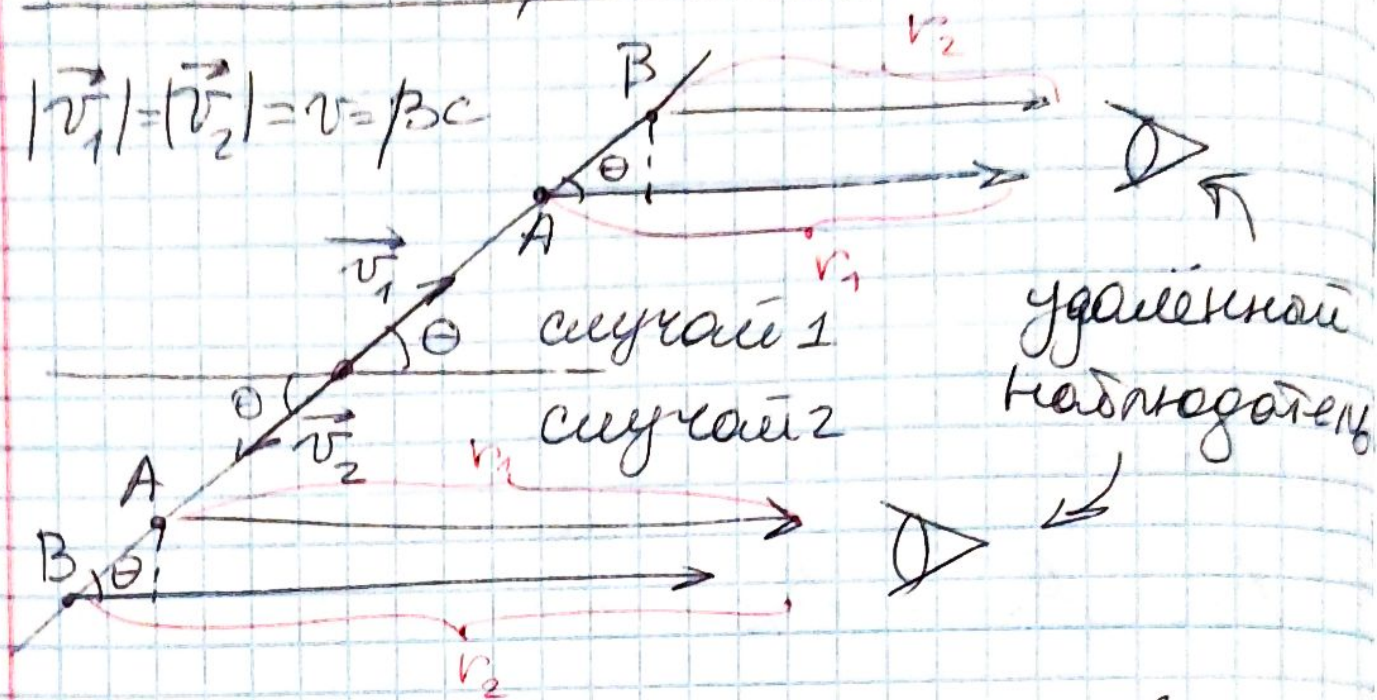 |v₁|=|v₂|=v=βc
r₂
B
θ
A
r₁
v₁
θ
случай 1
удалённый
наблюдатель
θ
v₂
случай 2
r₁
A
B
θ
r₂